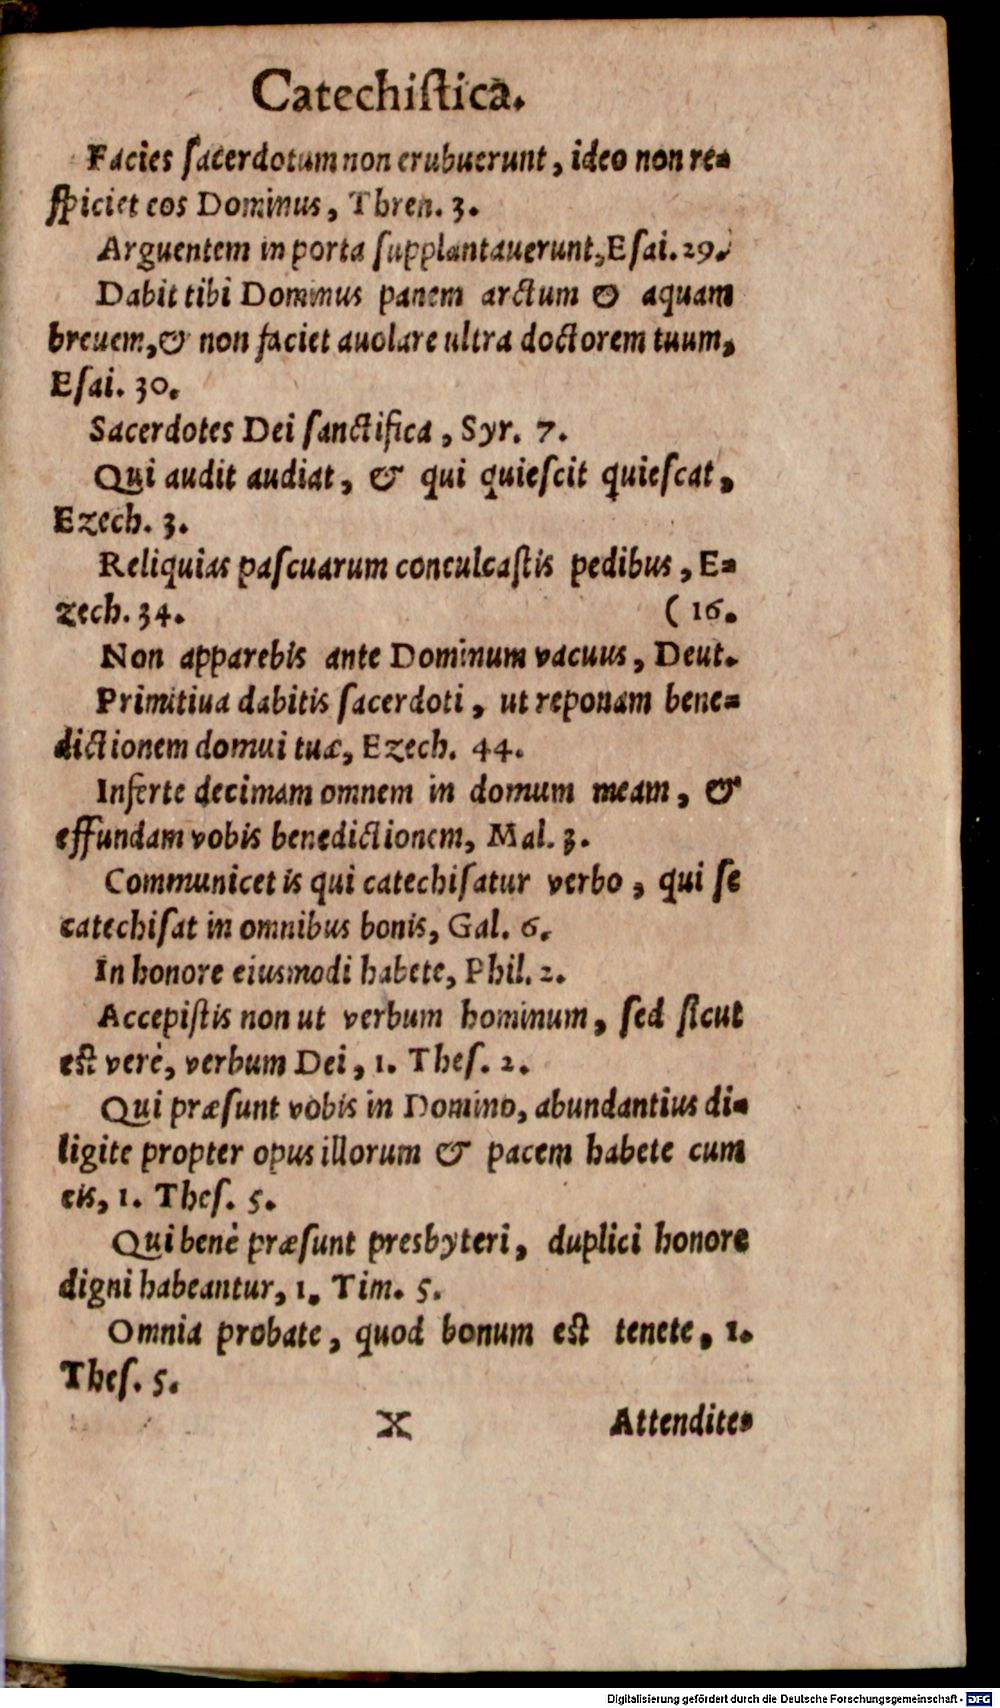 Catechiſtica.
Facies ſacerdotum non erubuerunt, ideo non re-
ſpiciet eos Dominus, Thren. 3.
Arguentem in porta ſupplantauerunt, Eſai. 29.
Dabit tibi Dominus panem arctum & aquam
breuem, & non faciet auolare ultra doctorem tuum,
Eſai. 30.
Sacerdotes Dei ſanctifica, Syr. 7.
Qui audit audiat, & qui quieſcit quieſcat,
Ezech. 3.
Reliquias paſcuarum conculcaſtis pedibus, E-
zech. 34. (16.
Non apparebis ante Dominum vacuus, Deut.
Primitiua dabitis ſacerdoti, ut reponam bene-
dictionem domui tuæ, Ezech. 44.
Inferte decimam omnem in domum meam, &
effundam vobis benedictionem, Mal. 3.
Communicet is qui catechiſatur verbo, qui ſe
catechiſat in omnibus bonis, Gal. 6.
In honore eiusmodi habete, Phil. 2.
Accepiſtis non ut verbum hominum, ſed ſicut
eſt verè, verbum Dei, 1. Theſ. 2.
Qui præſunt vobis in Domino, abundantius di-
ligite propter opus illorum & pacem habete cum
eis, 1. Theſ. 5.
Qui benè præſunt presbyteri, duplici honore
digni habeantur, 1. Tim. 5.
Omnia probate, quod bonum eſt tenete, 1.
Theſ. 5.
X Attendite
Digitalisierung gefördert durch die Deutsche Forschungsgemeinschaft - DFG